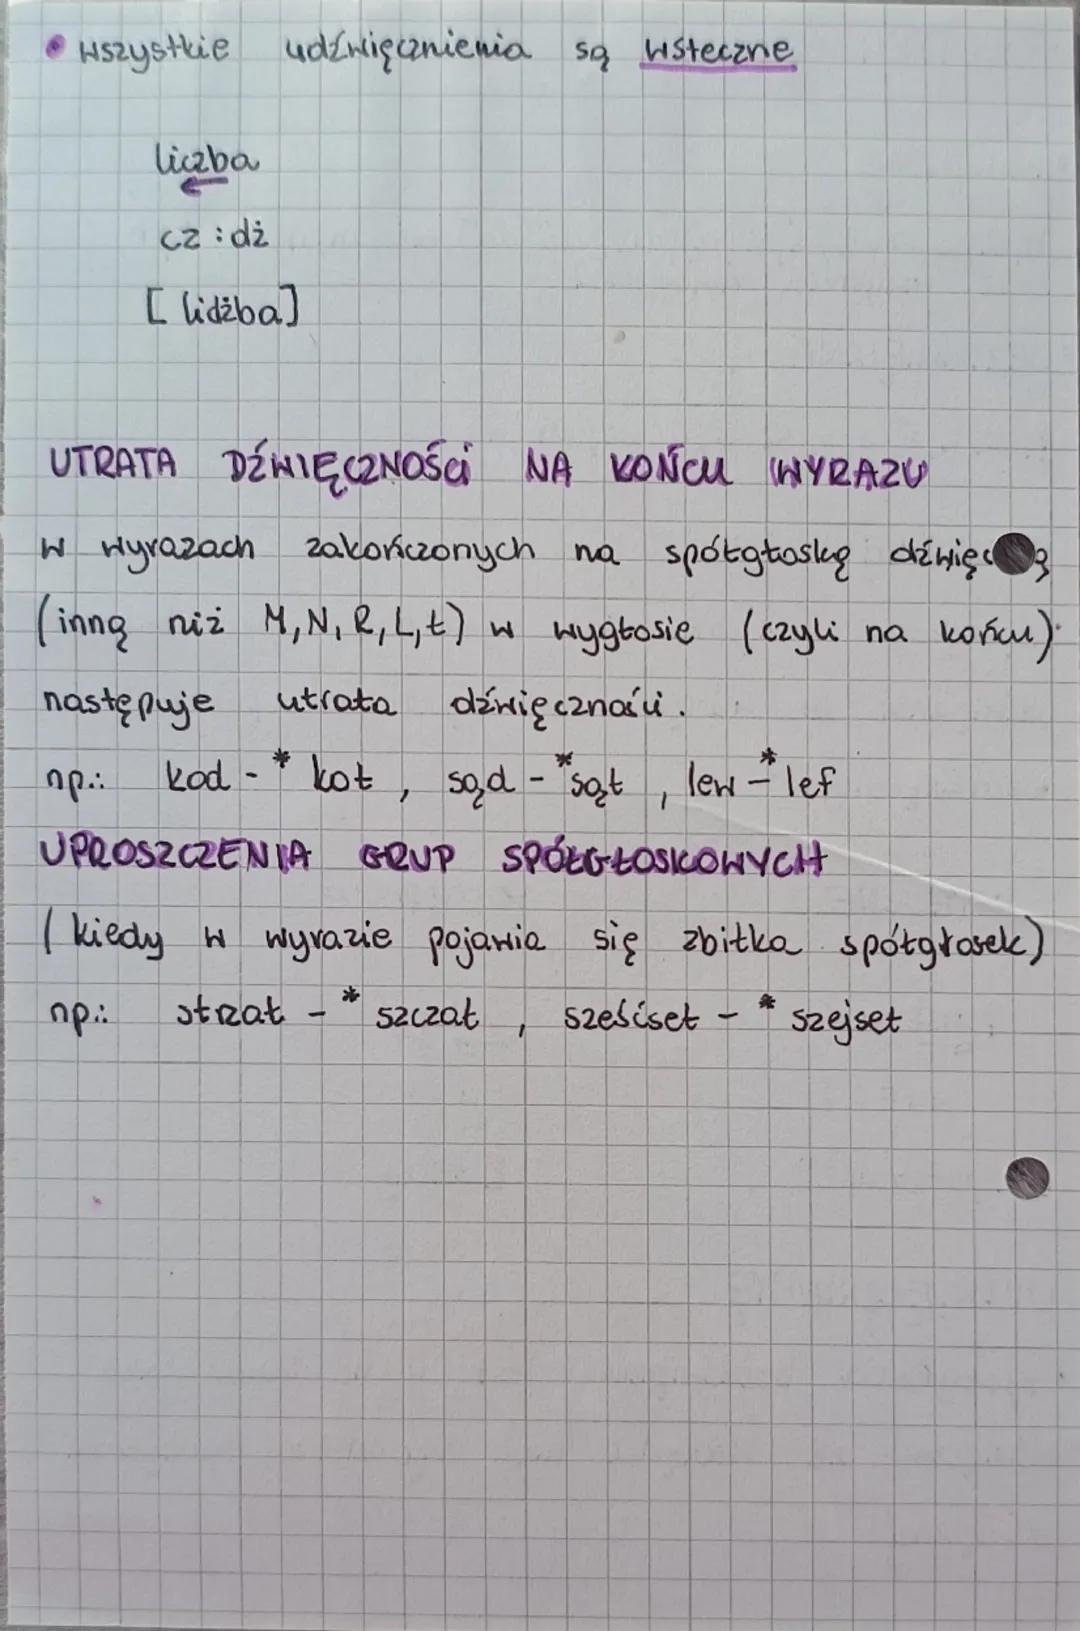 • wszystkie udźwięcznienia są wsteczne
liczba
cz : dż
[lidżba]
UTRATA DŹWIĘCZNOŚCI NA KOŃCU WYRAZU
w wyrazach zakończonych na spółgłoskę
(inną niż M, N, R, L, Ł) w wygłosie (czyli na końcu)
następuje utrata dźwięczności.
np.: kod - * kot, sąd - * sąt, lew - * lef
UPROSZCZENIA GRUP SPÓŁGŁOSKOWYCH
(kiedy w wyrazie pojawia się zbitka spółgłosek)
np.: strzał - * szczał, sześćset - * szejset